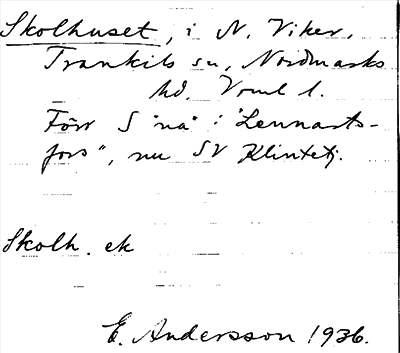 Skolhuset, i N. Viker,
Trankils sn, Nordmarks
hd. Vrml l.
Förr S "na" i "Lennarts-
fors", nu SV Klintetj.
Skolh. ek
E. Andersson 1936.